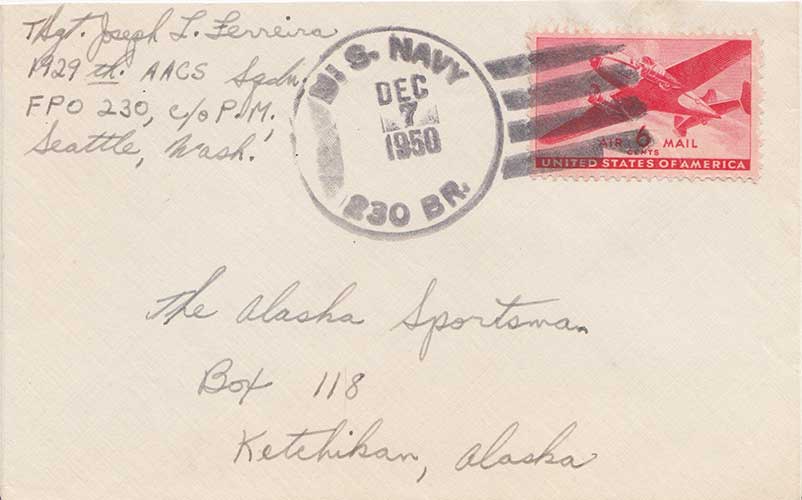 T/Sgt. Joseph L. Ferreira
1929 th. AACS Sqdn.
FPO 230, c/o P.M,
Seattle, Wash.
U. S. NAVY
DEC
7
1950
230 BR.
AIR 6 MAIL
CENTS
UNITED STATES OF AMERICA
The Alaska Sportsman
Box 118
Ketchikan, Alaska